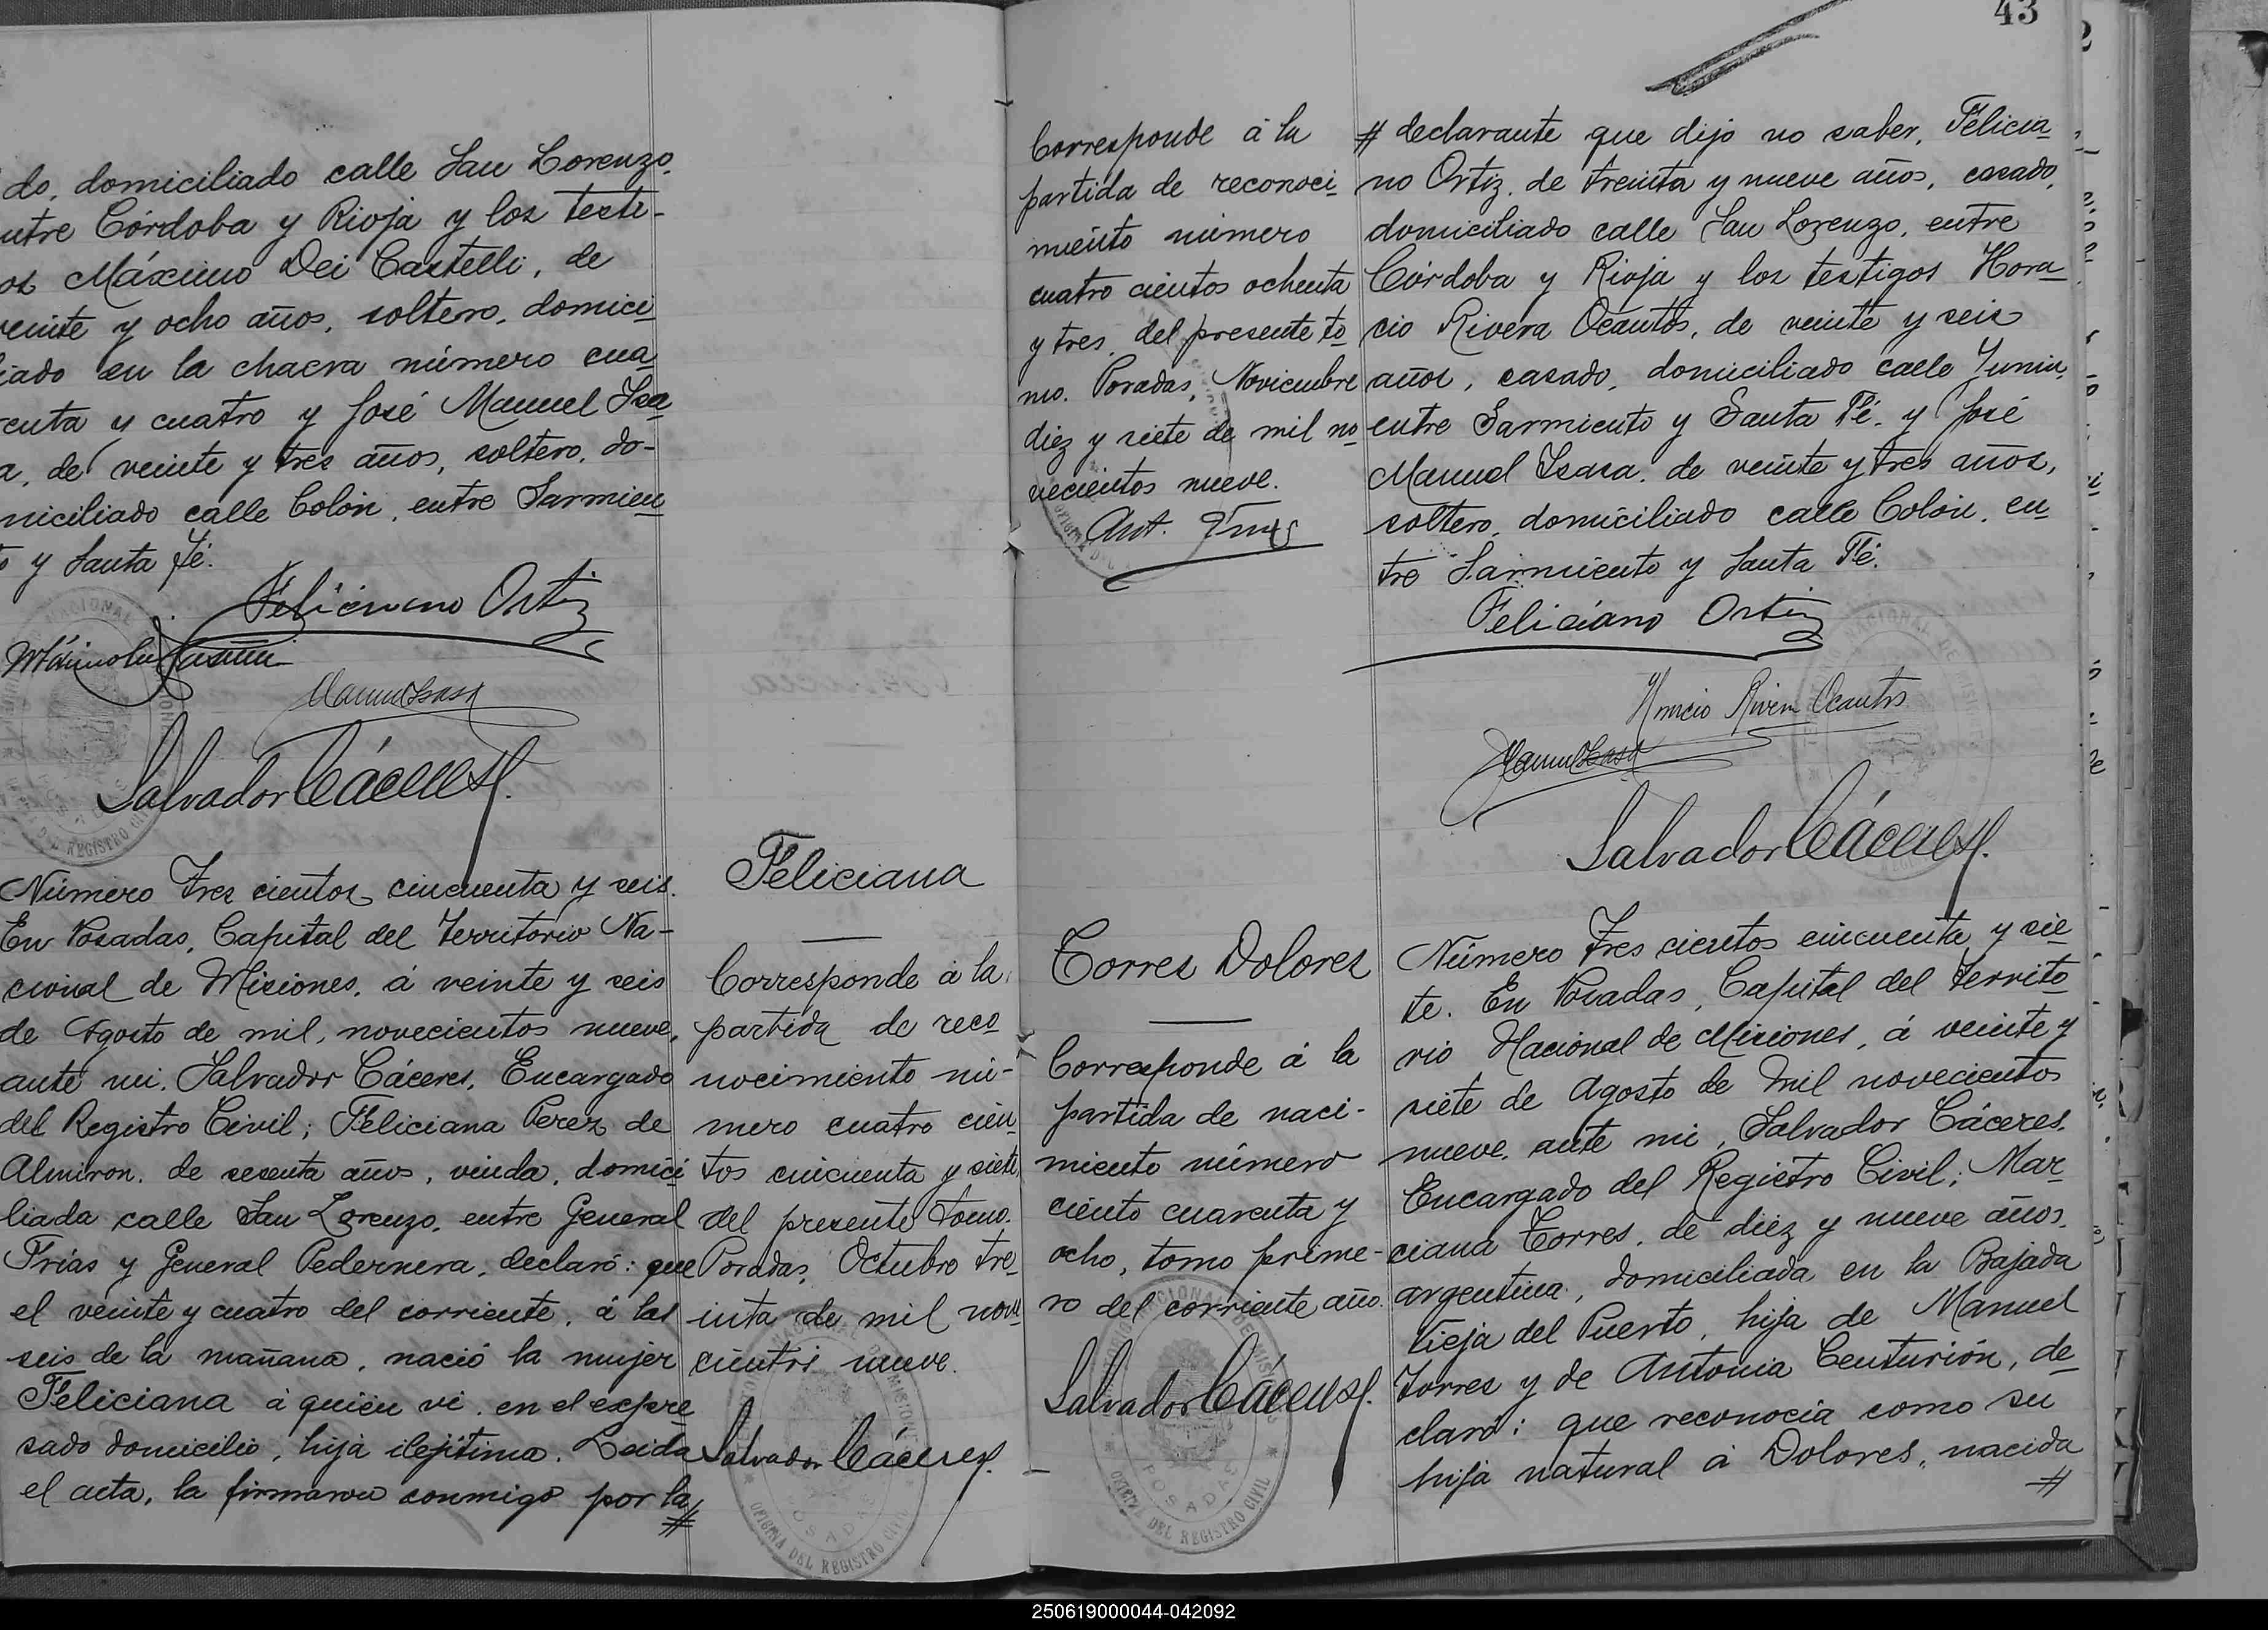 do, domiciliado calle San Lorenzo,
ntre Córdoba y Rioja y los testi-
os Máximo Dei Castelli, de
veinte y ocho años, soltero, domici
iado en la chacra número cua
renta y cuatro y José Manuel Isa
a, de veinte y tres años, soltero, do-
miciliado calle Colón, entre Sarmien
o y Santa Fé.
Feliciano Ortiz
Manuel Isasa
Salvador Cáceres
Número Tres cientos cincuenta y seis.
En Posadas, Capital del Territorio Na-
cional de Misiones, á veinte y seis
de Agosto de mil novecientos nueve,
ante mi, Salvador Cáceres, Encargado
del Registro Civil; Feliciana Perez de
Almiron, de sesenta años, viuda, domici
liada calle San Lorenzo, entre General
Frías y General Pedernera, declaró: que
el veinte y cuatro del corriente, á las
seis de la mañana, nació la mujer
Feliciana á quién vi en el expre
sado domicilio, hija ilejítima. Leida
el acta, la firmaron conmigo por la
#
Feliciana
Corresponde á la
partida de reco
nocimiento nú-
mero cuatro cien
tos cincuenta y siete
del presente tomo.
Posadas, Octubre tre
inta de mil nove
cientos nueve.
Salvador Cáceres
43
Corresponde á la
partida de reconoci
miento número
cuatro cientos ochenta
y tres, del presente to
mo. Posadas, Noviembre
diez y siete de mil no
vecientos nueve.
Ant.
# declarante que dijo no saber, Felicia
no Ortiz, de treinta y nueve años, casado,
domiciliado calle San Lorenzo, entre
Córdoba y Rioja y los testigos Hora
cio Rivera Ocantos, de veinte y seis
años, casado, domiciliado calle Junin,
entre Sarmiento y Santa Fé, y José
Manuel Isasa, de veinte y tres años,
soltero, domiciliado calle Colón, en
tre Sarmiento y Santa Fé.
Feliciano Ortiz
Horacio Rivera Ocantos
Manuel Isasa
Salvador Cáceres
Torres Dolores
Corresponde á la
partida de naci-
miento número
ciento cuarenta y
ocho, tomo prime-
ro del corriente año.
Salvador Cáceres
Número Tres cientos cincuenta y sie
te. En Posadas, Capital del Territo
rio Nacional de Misiones, á veinte y
siete de Agosto de mil novecientos
nueve, ante mi, Salvador Cáceres,
Encargado del Registro Civil; Mar
ciana Torres, de diez y nueve años,
argentina, domiciliada en la Bajada
Vieja del Puerto, hija de Manuel
Torres y de Antonia Centurión, de
claró: que reconocía como su
hija natural á Dolores, nacida
#
250619000044-042092